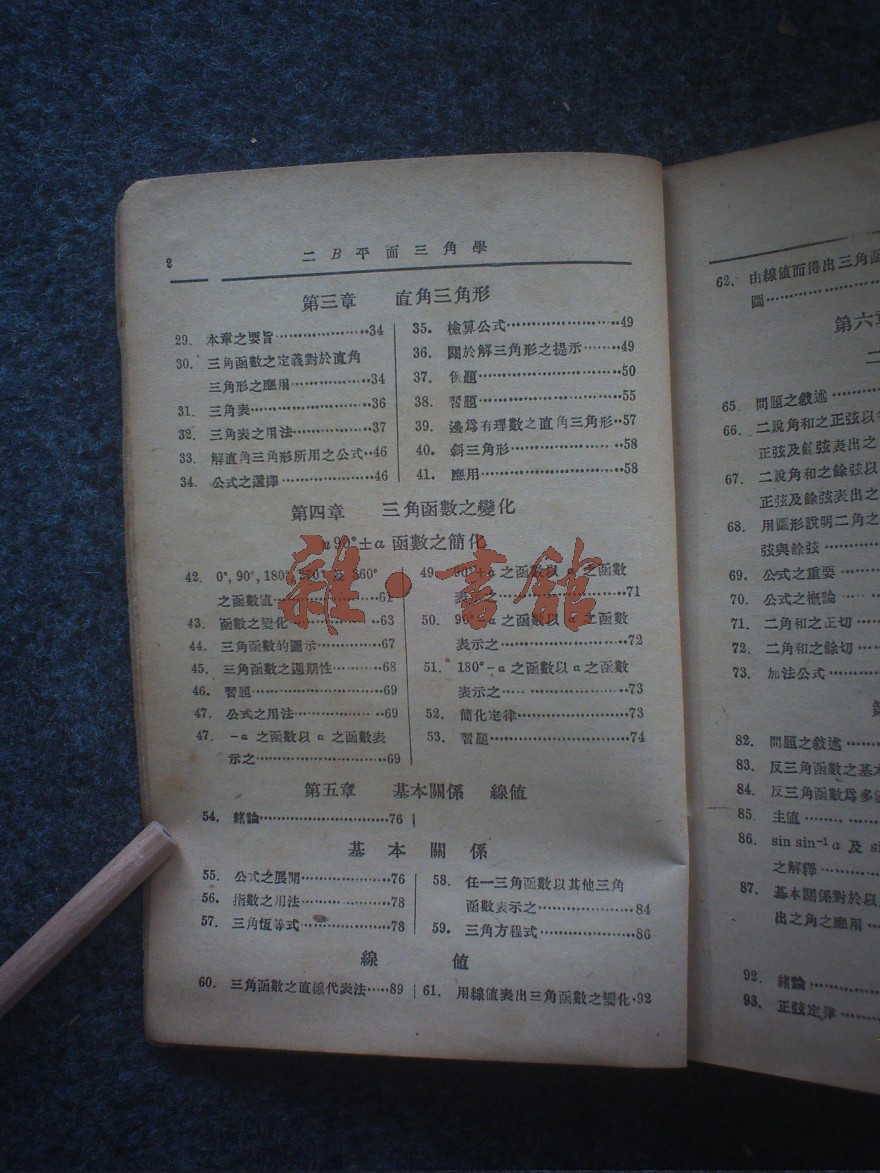 2
二 B 平面三角學
第三章 直角三角形
29. 本章之要旨··············34
30. 三角函數之定義對於直角
三角形之應用············34
31. 三角表··················36
32. 三角表之用法············37
33. 解直角三角形所用之公式··46
34. 公式之選擇··············46
35. 檢算公式················49
36. 關於解三角形之提示······49
37. 例題····················50
38. 習題····················55
39. 邊爲有理數之直角三角形··57
40. 斜三角形················58
41. 應用····················58
第四章 三角函數之變化
90°±α 函數之簡化
42. 0°, 90°, 180°, 270° 及 360°
之函數值················61
43. 函數之變化··············63
44. 三角函數的圖示··········67
45. 三角函數之週期性········68
46. 習題····················69
47. 公式之用法··············69
47. −α 之函數以 α 之函數表
示之····················69
49. 90°+α 之函數以 α 之函數
表示之··················71
50. 90°−α 之函數以 α 之函數
表示之··················72
51. 180°−α 之函數以 α 之函數
表示之··················73
52. 簡化定律················73
53. 習題····················74
第五章 基本關係 線值
54. 緒論····················76
基本關係
55. 公式之展開··············76
56. 指數之用法··············78
57. 三角恆等式··············78
58. 任一三角函數以其他三角
函數表示之··············84
59. 三角方程式··············86
線值
60. 三角函數之直線代表法·····89
61. 用線值表出三角函數之變化·92
62. 由線值而得出三角函
圖··················
第六章
二
65 問題之敘述··········
66. 二說角和之正弦以
正弦及餘弦表出之
67. 二說角和之餘弦以
正弦及餘弦表出之
68. 用圖形說明二角之
弦與餘弦··········
69. 公式之重要········
70. 公式之概論········
71. 二角和之正切······
72. 二角和之餘切······
73. 加法公式··········
第
82. 問題之敘述········
83. 反三角函數之基本
84. 反三角函數爲多值
85 主值··············
86. sin sin⁻¹α 及 si
之解釋············
87. 基本關係對於以
出之角之應用······
92. 緒論··············
93. 正弦定律··········
雜·書館